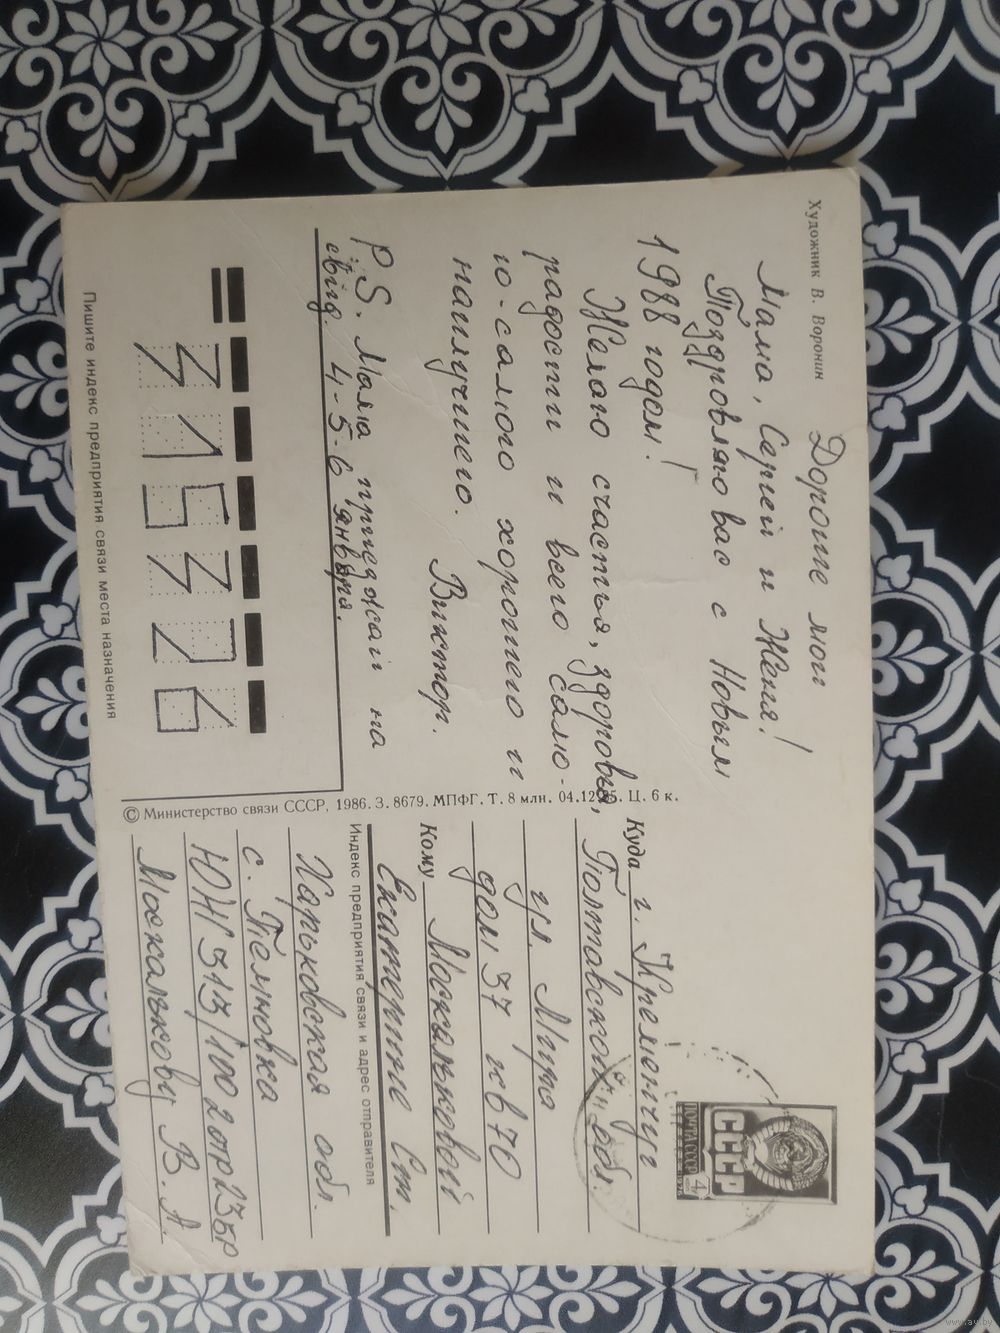 Художник В. Воронин
Дорогие мои
Мама, Сергей и Женя!
Поздровляю вас с Новым
1988 годом!
Желаю счастья, здоровья,
радости и всего само-
го-самого хорошего и
наилучшего.
Виктор.
P.S. Мама приеджай на
свід. 4-5-6 января.
315126
Пишите индекс предприятия связи места назначения
© Министерство связи СССР. 1986. З. 8679. МПФГ. Т. 8 млн. 04.12.85. Ц. 6 к.
ПОЧТА СССР
4
СССР
Куда г. Кременчуг
Полтовской обл.
ул. Мира
дом 37 кв 70
Кому Москальковой
Екатерине Ст.
Индекс предприятия связи и адрес отправителя
Харьковская обл.
с. Тёмновка
ЮЖ 313/100 2 отр 23 бр
Москалькову В. А.
www.ay.by